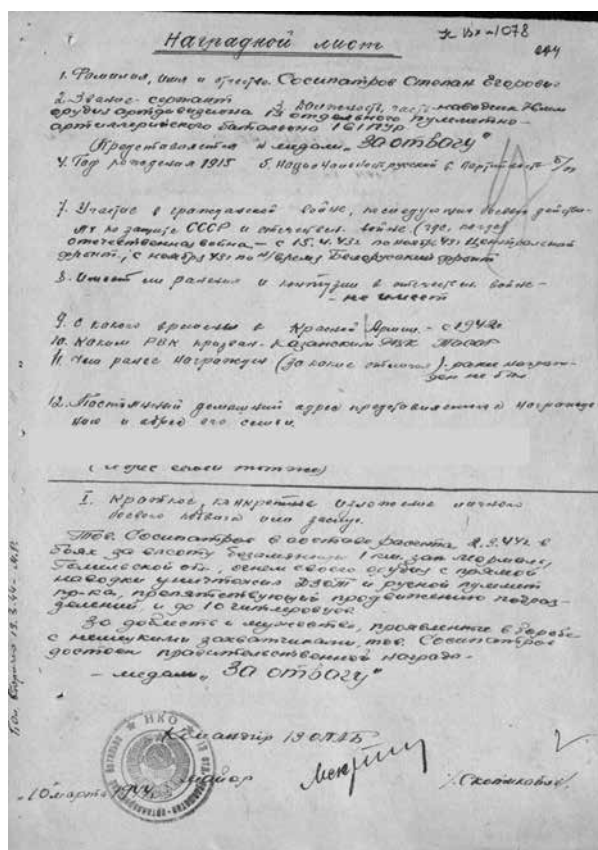 Наградной лист
1. Фамилия, имя и отчество Сосипатров Степан Егорович
2. Звание - сержант 3. Должность, часть - наводчик 76мм
орудия артдивизиона 13 отдельного пулеметно-
артиллерийского батальона 161ПУР
Представляется к медали „За отвагу"
4. Год рождения 1915 5. Национальность русский 6. Партийность б/п
7. Участие в гражданской войне, последующих боевых действи-
ях по защите СССР и отечествен. войне (где, когда)
отечественная война - с 15.4.43г по ноябрь 43г Центральный
фронт, с ноября 43г по н/время Белорусский фронт
8. Имеет ли ранения и контузии в отечествен. войне -
- не имеет
9. С какого времени в Красной Армии - с 1942г
10. Каким РВК призван - Казанским РВК ТАССР
11. Чем ранее награжден (за какие отличия) - ранее награж-
ден не был
12. Постоянный домашний адрес представляемого к награжде-
нию и адрес его семьи.
(адрес семьи тот же)
I. Краткое, конкретное изложение личного
боевого подвига или заслуг.
Тов. Сосипатров в составе расчета 2.3.44г в
боях за высоту безымянную 1 км. зап. Мормаль,
Гомельской обл, огнем своего орудия с прямой
наводки уничтожил ДЗОТ и ручной пулемет
пр-ка, препятствующий продвижению подраз-
делений, и до 10 гитлеровцев.
За доблесть и мужество, проявленные в борьбе
с немецкими захватчиками, тов. Сосипатров
достоин правительственной награды -
- медали „За отвагу"
Командир 13 ОПАБ
майор
"10 марта 1944г.
НКО